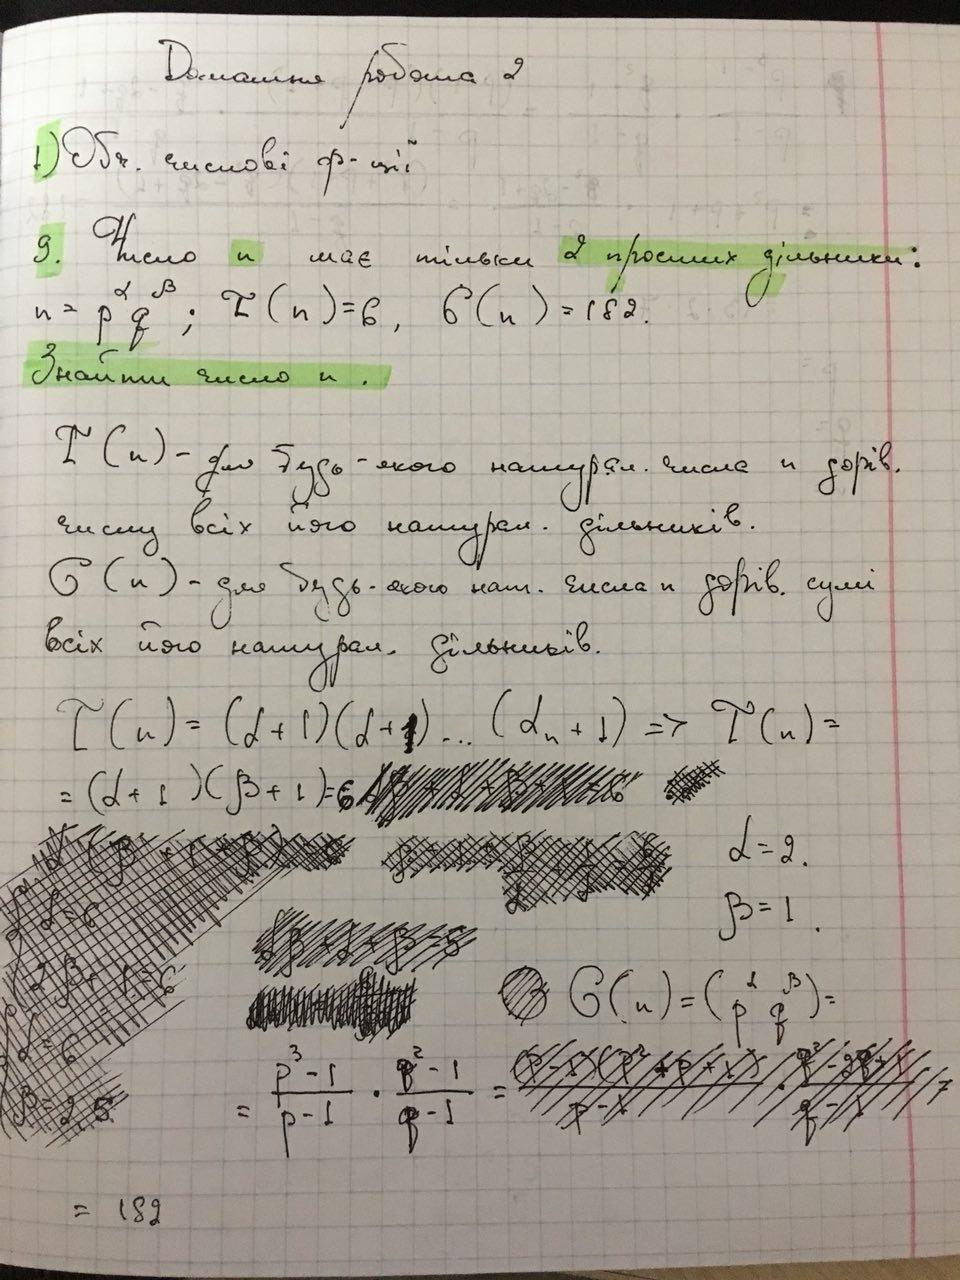 Домашня робота 2
1) Обч. числові ф-ції
9. Число n має тільки 2 простих дільники:
n = p^α q^β ; τ(n)=6, σ(n)=182.
Знайти число n.
τ(n) - для будь-якого натурал. числа n дорів.
числу всіх його натурал. дільників.
σ(n) - для будь-якого нат. числа n дорів. сумі
всіх його натурал. дільників.
τ(n) = (α+1)(α+1)... (αn+1) => τ(n) =
= (α+1)(β+1)=6
α=2.
β=1.
σ(n)=(p^α q^β)=
= p^3-1/p-1 · q^2-1/q-1 =
= 182